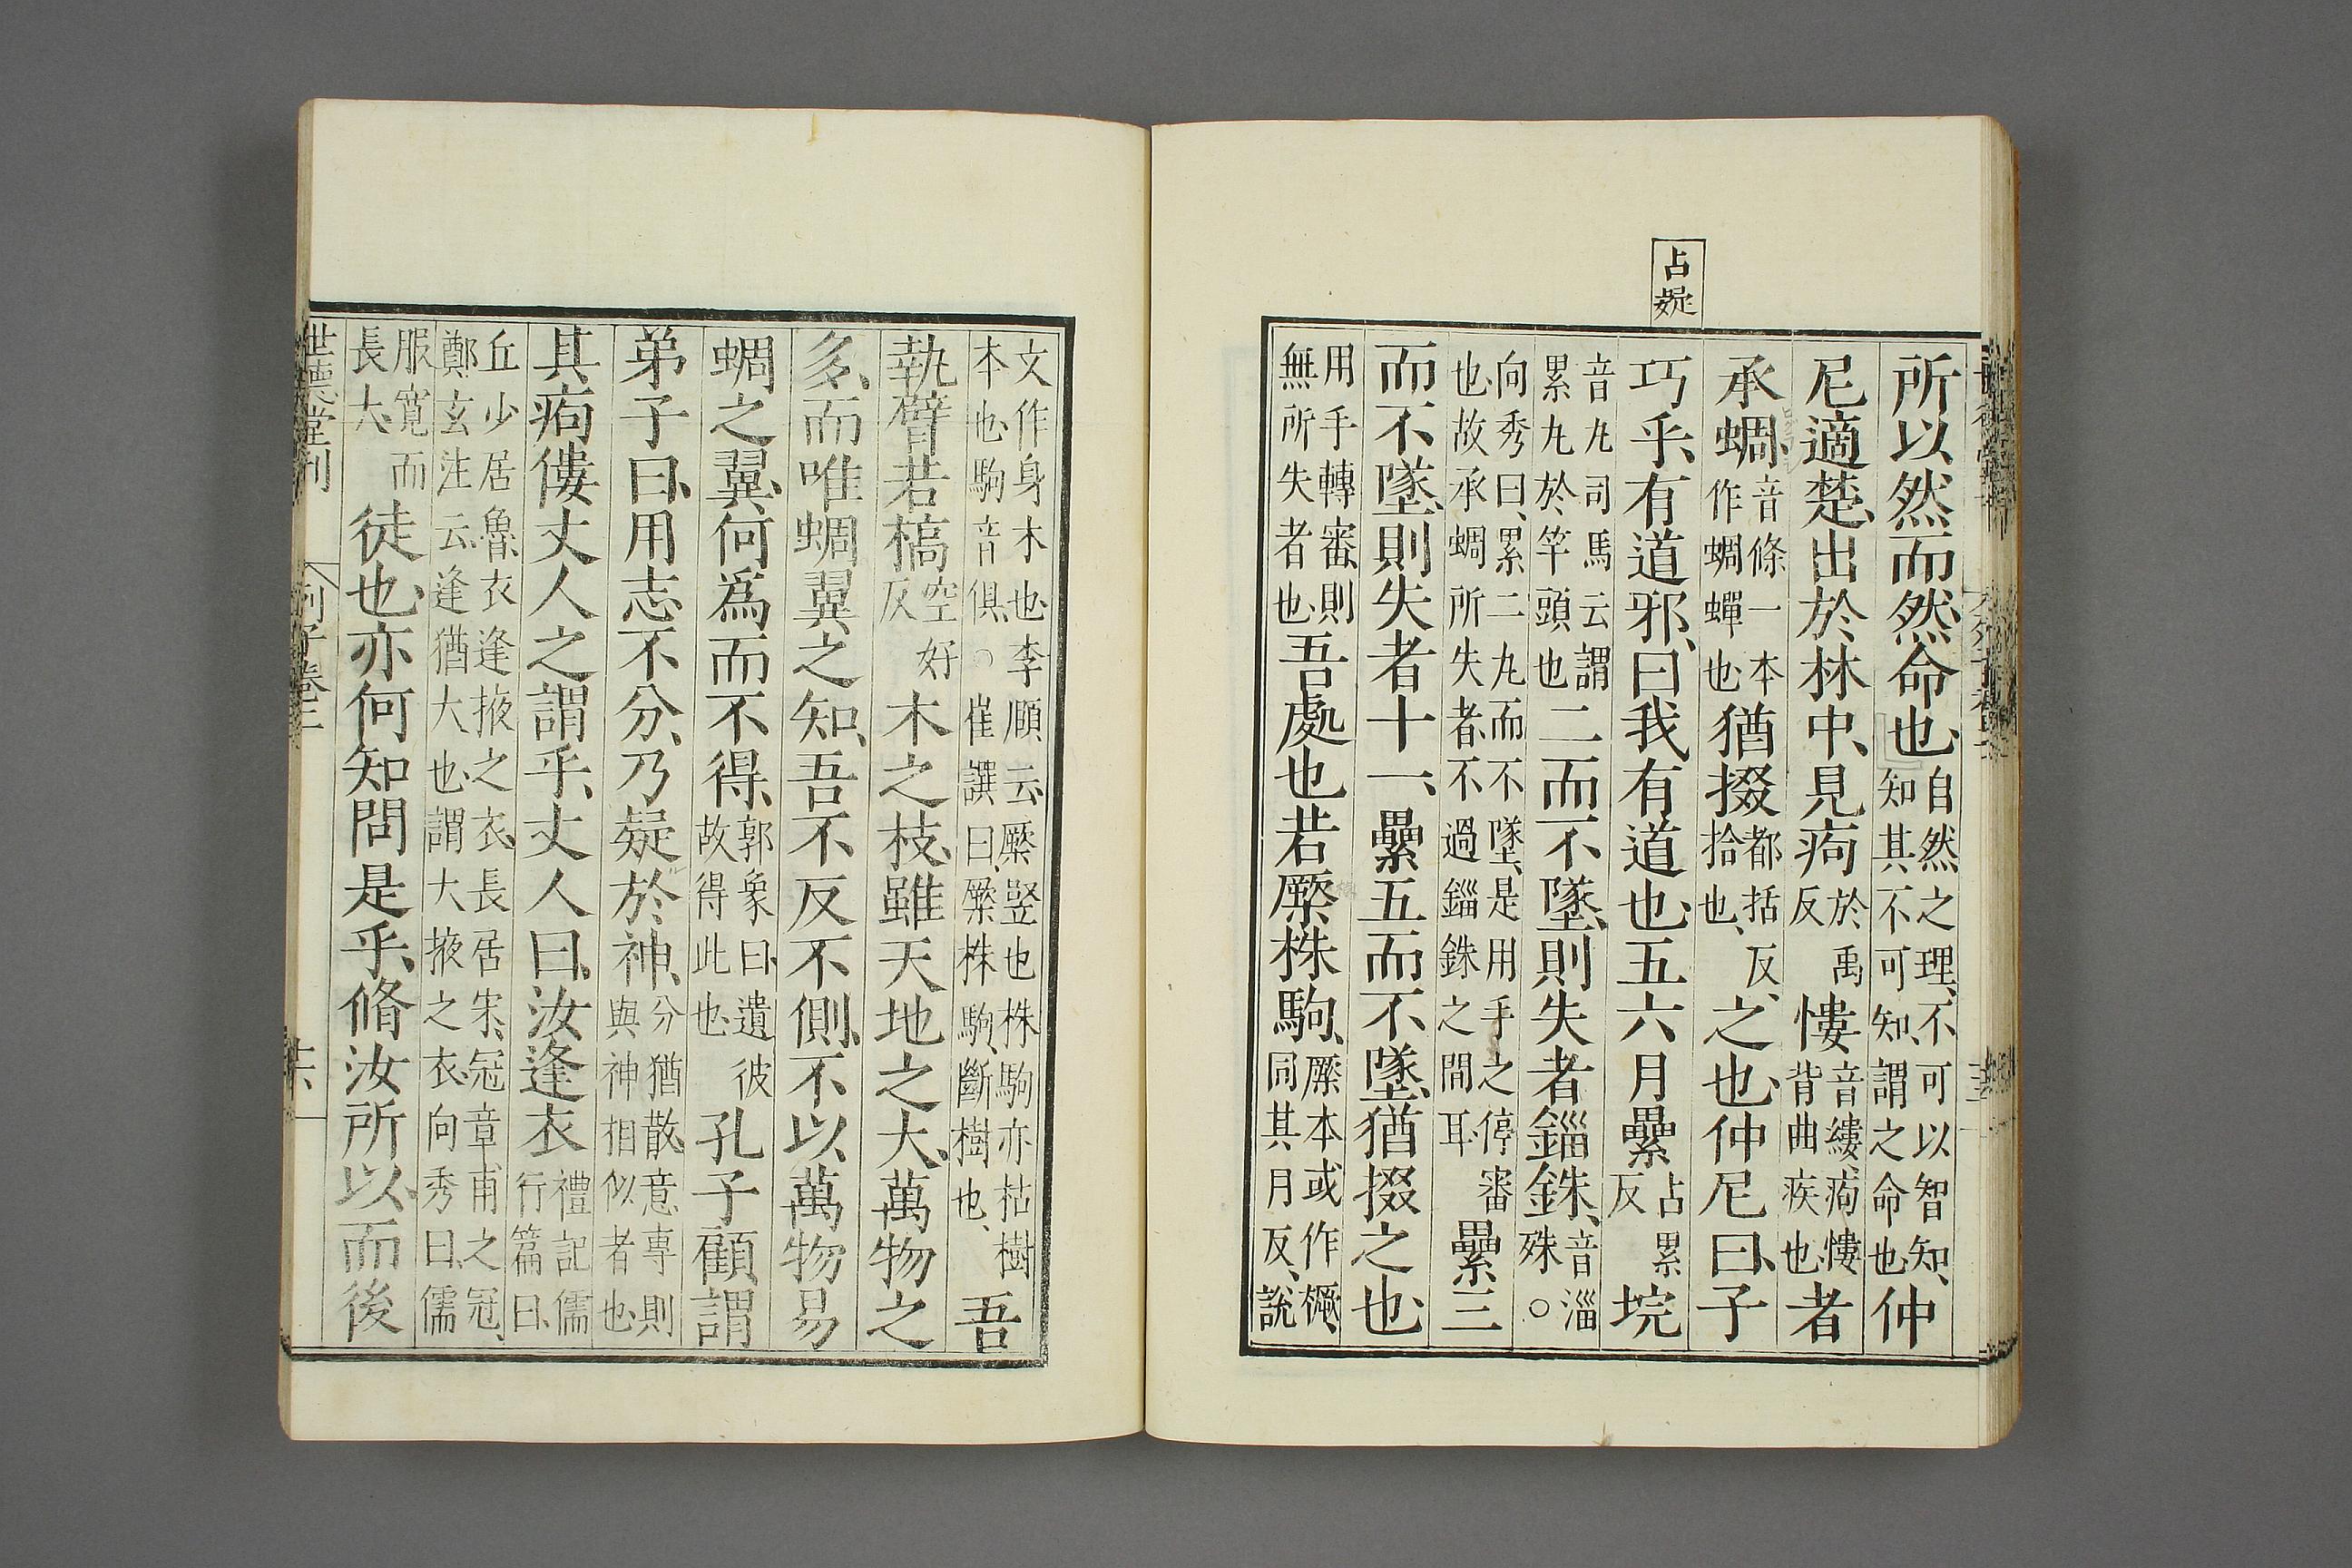 占疑
所以然而然命也自然之理不可以智知知其不可知謂之命也仲
尼適楚出於林中見痀於禹反僂音縷痀僂背曲疾也者
承蜩音條一本作蜩蟬也猶掇都括反拾也之也仲尼曰子
巧乎有道邪曰我有道也五六月纍占累反垸
音丸司馬云謂累丸於竿頭也二而不墜則失者錙銖音淄殊○
向秀曰累二丸而不墜是用手之停審也故承蜩所失者不過錙銖之間耳纍三
而不墜則失者十一纍五而不墜猶掇之也
用手轉審則無所失者也吾處也若橜株駒橜本或作橛同其月反說
文作身木也李頤云橜豎也株駒亦枯樹本也駒音俱○崔譔曰橜株駒斷樹也吾
執臂若槁空好反木之枝雖天地之大萬物之
多而唯蜩翼之知吾不反不側不以萬物易
蜩之翼何爲而不得郭象曰遺彼故得此也孔子顧謂
弟子曰用志不分乃疑於神分猶散意專則與神相似者也
其痀僂丈人之謂乎丈人曰汝逢衣禮記儒行篇曰
丘少居魯衣逢掖之衣長居宋冠章甫之冠鄭玄注云逢猶大也謂大掖之衣向秀曰儒
服寬而長大徒也亦何知問是乎脩汝所以而後
世德堂刊
列子卷二
十六